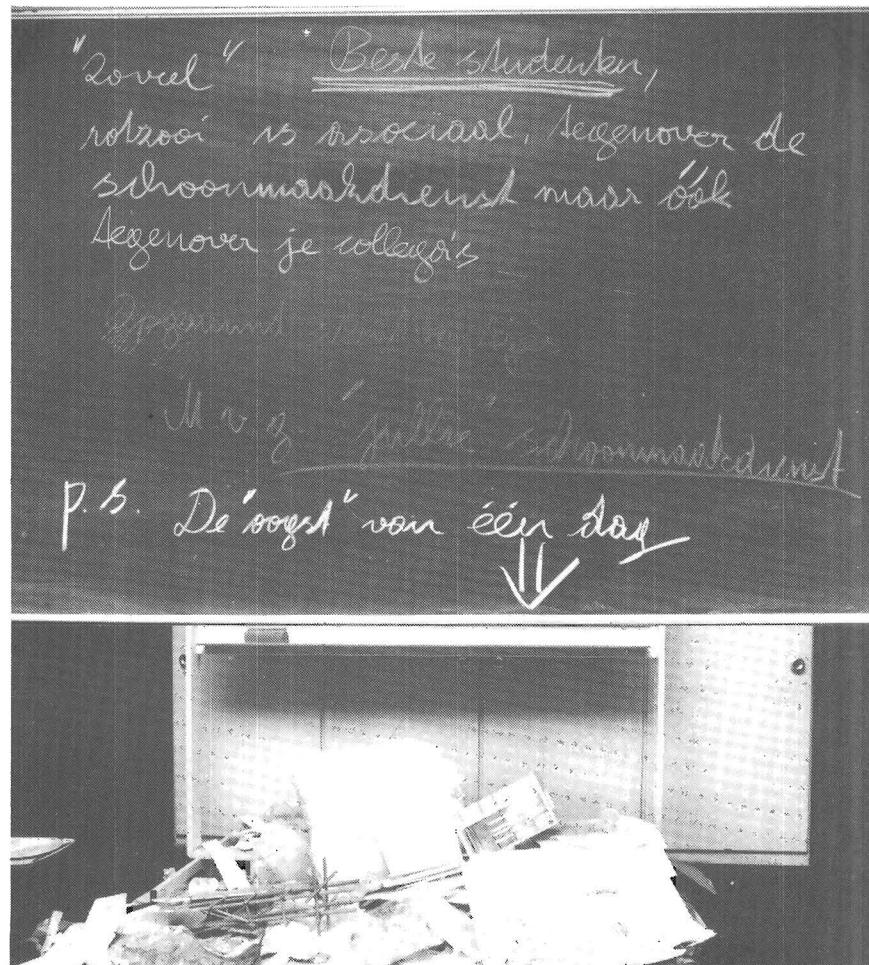 Beste studenten,
"Zoveel"
rotzooi is asociaal, tegenover de
schoonmaakdienst maar óók
tegenover je collega's
Opgeruimd
M v g "jullie" schoonmaakdienst
p.s. De "oogst" van één dag